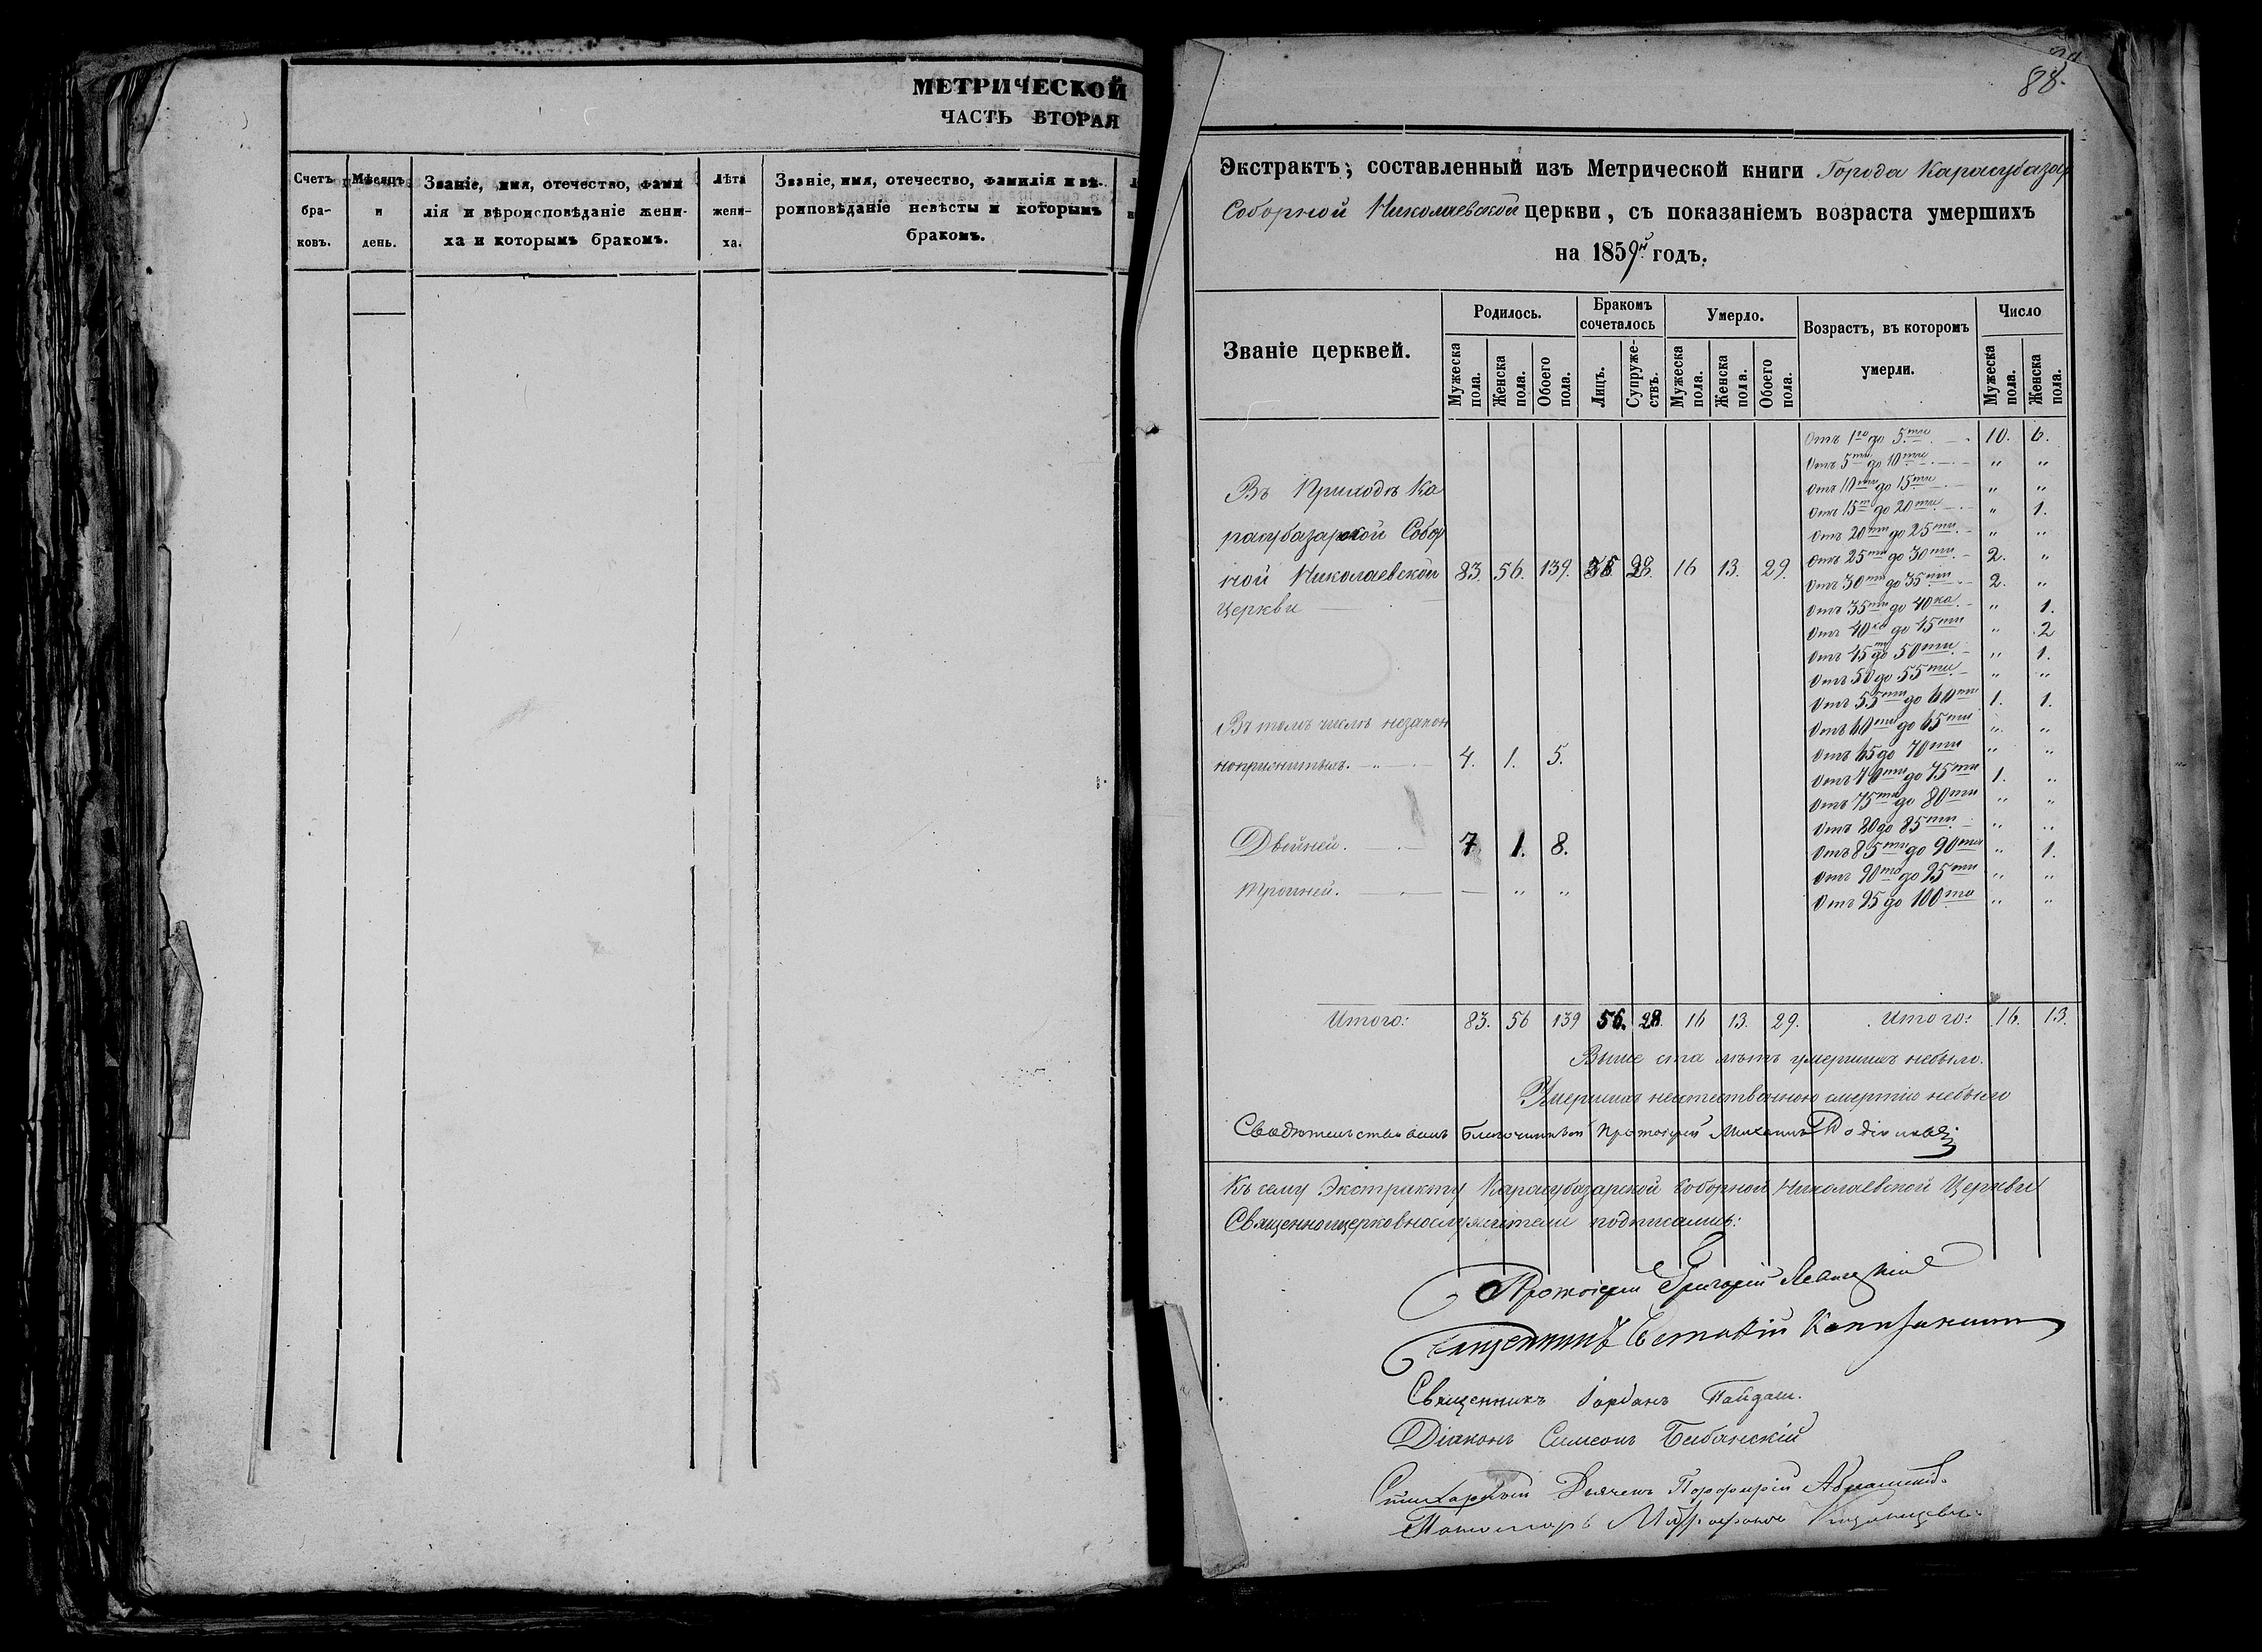 МЕТРИЧЕСКОЙ
ЧАСТЬ ВТОРАЯ
Счетъ бра- ковъ.
Мѣсяцъ и день.
Званіе, имя, отечество, фами
лія и вѣроисповѣданіе жени-
ха и которымъ бракомъ.
Лѣта жени- ха.
Званіе, имя, отечество, фамилія и вѣ-
роисповѣданіе невѣсты и которымъ
бракомъ.
88.
Экстрактъ, составленный изъ Метрической книги Города Карасубазар
Соборной Николаевской церкви, съ показаніемъ возраста умершихъ
на 1859й годъ.
Званіе церквей.
Родилось.
Бракомъ сочеталось
Умерло.
Возрастъ, въ которомъ умерли.
Число
Мужеска пола.
Женска пола.
Обоего пола.
Лицъ.
Супруже- ствъ.
Мужеска пола.
Женска пола.
Обоего пола.
Мужеска пола.
Женска пола.
Отъ 1го до 5ти 10. 6.
Отъ 5ти до 10ти " "
Отъ 10ти до 15ти " "
Отъ 15ти до 20ти " 1.
Отъ 20ти до 25ти " "
Отъ 25ти до 30ти 2. "
Отъ 30ти до 35ти 2. "
Отъ 35ти до 40ка " 1.
Отъ 40ка до 45ти " 2
Отъ 45ти до 50ти " 1.
Отъ 50 до 55ти " "
Отъ 55ти до 60ти 1. 1.
Отъ 60ти до 65ти " "
Отъ 65 до 70ти " "
Отъ 70ти до 75ти 1. "
Отъ 75ти до 80ти " "
Отъ 80 до 85ти " "
Отъ 85ти до 90та " 1.
Отъ 90та до 95ти " "
Отъ 95 до 100та " "
Въ Приходѣ Ка
расубазарской Собор
ной Николаевской 83. 56. 139. 28. 16 13. 29.
Церкви
Въ томъ числѣ незакон
норижденныхъ. 4. 1. 5.
Двойней. 7 1. 8.
Тройней. — " "
Итого: 83. 56 139 56. 28. 16 13. 29. Итого: 16. 13.
Выше ста лѣтъ умершихъ небыло.
Умершихъ неестественною смертію небыло
Свидѣтельствовалъ Благочинный Протоіерей Михаилъ Родіоновъ
Къ сему Экстракту Карасубазарской Соборной Николаевской Церкви
Священноицерковнослужители подписались:
Протоіерей Григорій
Священникъ
Священникъ Іорданъ
Діаконъ Симеонъ
Стихарный Дьячекъ Порфирій
Пономарь